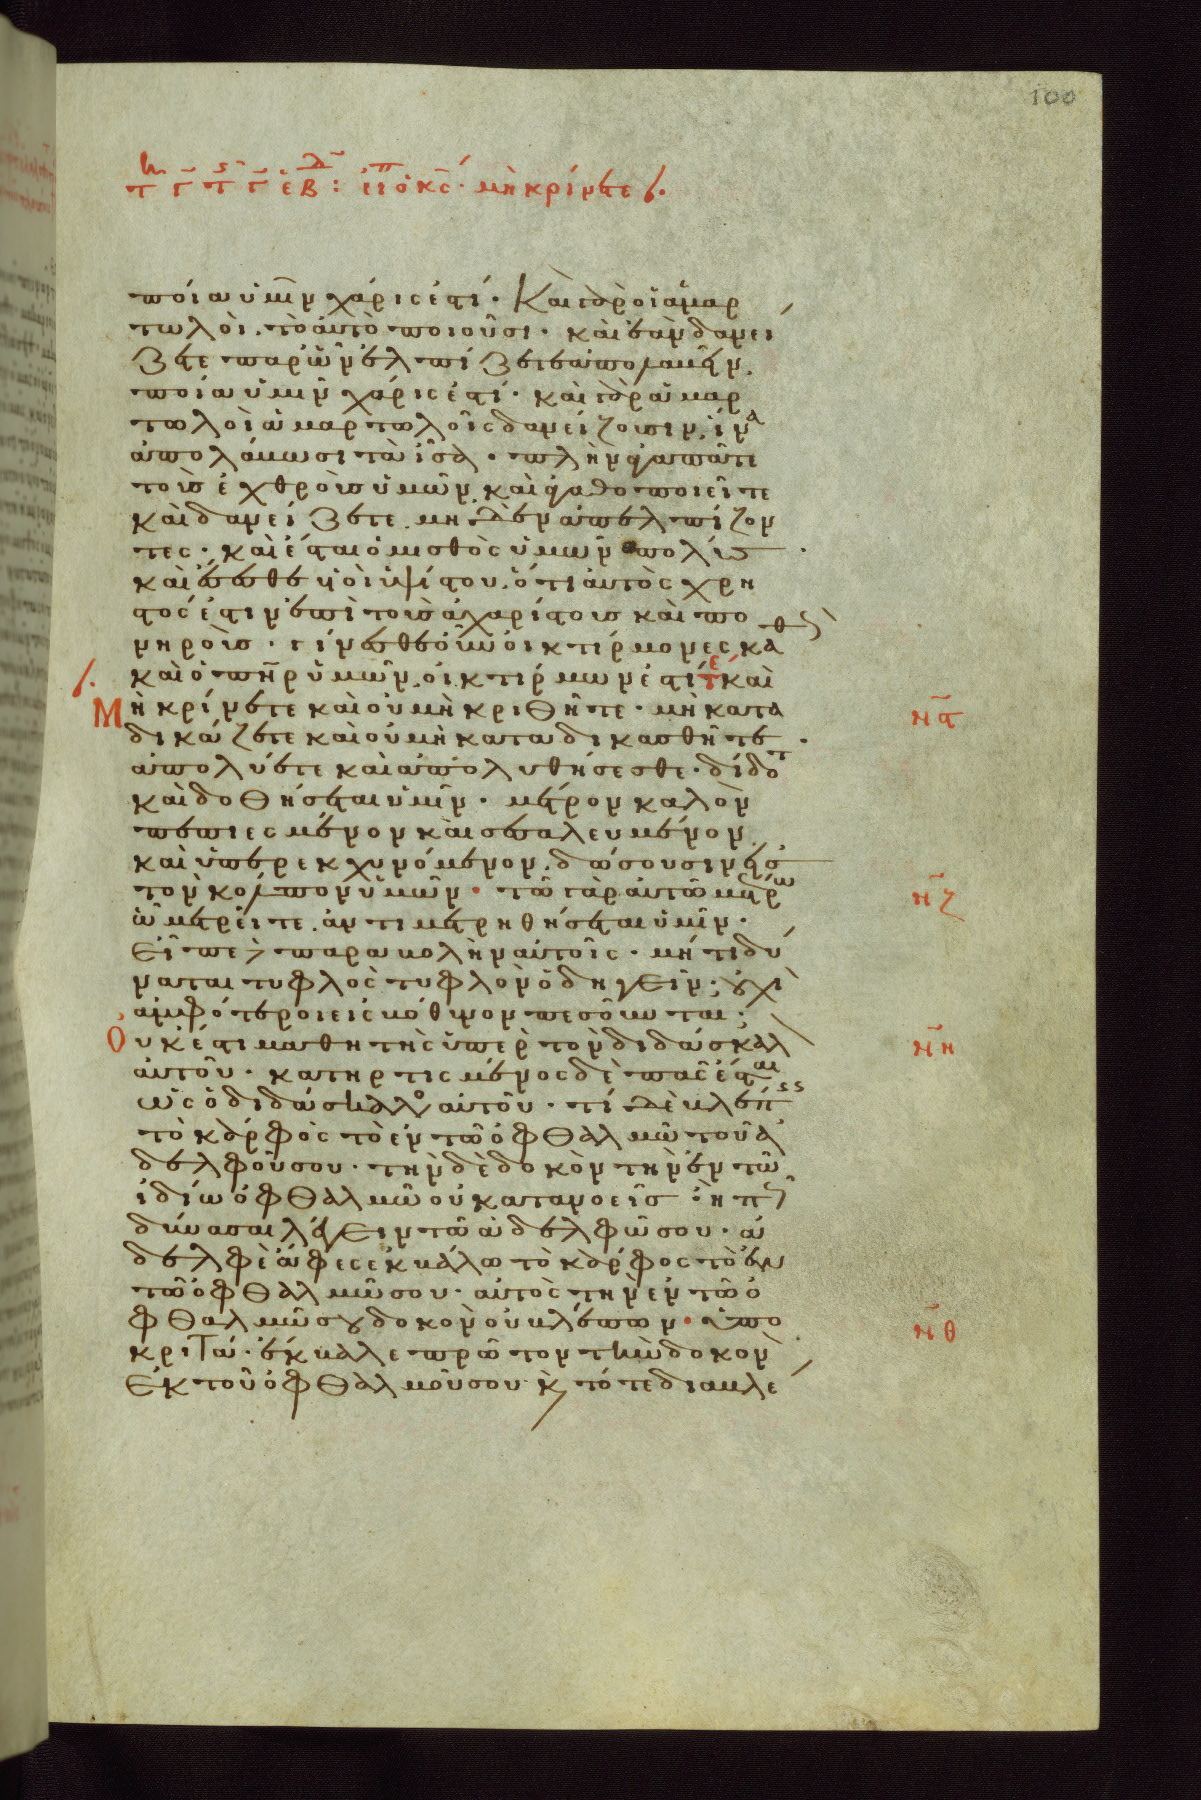 100
τη Γ τ ς Γ ε Β : ειπ ο κς· μὴ κρίνετε
ποία ὑμῖν χάρις ἐστί· Καὶ γὰρ οἱ ἁμαρ
τωλοὶ. τὸ αυτὸ ποιοῦσι· καὶ ἐὰν δανεί
ζητε παρ ὧν ἐλπίζετε ἀπολαβεῖν,
ποία ὑμῖν χάρις ἐστί· καὶ γὰρ ἁμαρ
τωλοὶ ἁμαρτωλοῖς δανείζουσιν, ἵνα
ἀπολάβωσι τὰ ἴσα· πλὴν ἀγαπᾶτε
τοὺς ἐχθροὺς ὑμῶν, καὶ ἀγαθοποιεῖτε
καὶ δανείζετε. μηδὲν ἀπελπίζον
τες· καὶ ἔσται ὁ μισθὸς ὑμῶν πολὺς·
καὶ ἔσεσθε υἱοὶ ὑψίστου. ὅτι αυτὸς χρη
στός ἐστιν ἐπὶ τοὺς ἀχαρίστους καὶ πο
νηροὺς· γίνεσθε οὖν οἰκτίρμονες καθ
καὶ ὁ πηρ ὑμῶν, οἰκτίρμων ἐστί τε καὶ
Μὴ κρίνετε καὶ οὐ μὴ κριθῆτε· μὴ κατα
δικάζετε καὶ οὐ μὴ καταδικασθῆτε·
ἀπολύετε καὶ ἀπολυθήσεσθε· δίδοτ
καὶ δοθήσεται ὑμῖν· μέτρον καλὸν
πεπιεσμένον καὶ σεσαλευμένον,
καὶ ὑπερεκχυνόμενον, δώσουσιν εἰς
τὸν κόλπον ὑμῶν· τῶ γὰρ αὐτῶ μέτρω
ὧ μετρεῖτε. ἀντιμετρηθήσεται ὑμῖν·
Εἶπε δὲ παραβολὴν αὐτοῖς· μήτι δύ
ναται τυφλὸς τυφλὸν ὁδηγεῖν· οὐχὶ
ἀμφότεροι εἰς βόθυνον πεσοῦνται·
Οὐκ ἔστι μαθητὴς ὑπὲρ τὸν διδάσκαλ
αὐτοῦ· κατηρτισμένος δὲ πᾶς ἔσται
ὡς ὁ διδάσκαλος αὐτοῦ· τί δὲ βλέπεις
τὸ κάρφος τὸ ἐν τῶ ὀφθαλμῶ τοῦ ἀ
δελφοῦ σου· τὴν δὲ δοκὸν τὴν ἐν τῶ
ἰδίω ὀφθαλμῶ οὐ κατανοεῖς· ἢ πῶς
δύνασαι λέγειν τῶ ἀδελφῶ σου· ἀ
δελφὲ ἄφες ἐκβάλω τὸ κάρφος τὸ ἐν
τῶ ὀφθαλμῶ σου· αὐτὸς τὴν ἐν τῶ ὀ
φθαλμῶ σου δοκὸν οὐ βλέπων· ὑπο
κριτά· ἔκβαλε πρῶτον τὴν δοκὸν
Ἐκ τοῦ ὀφθαλμοῦ σου κ τότε διαβλέ
νϛ
νζ
νη
νθ